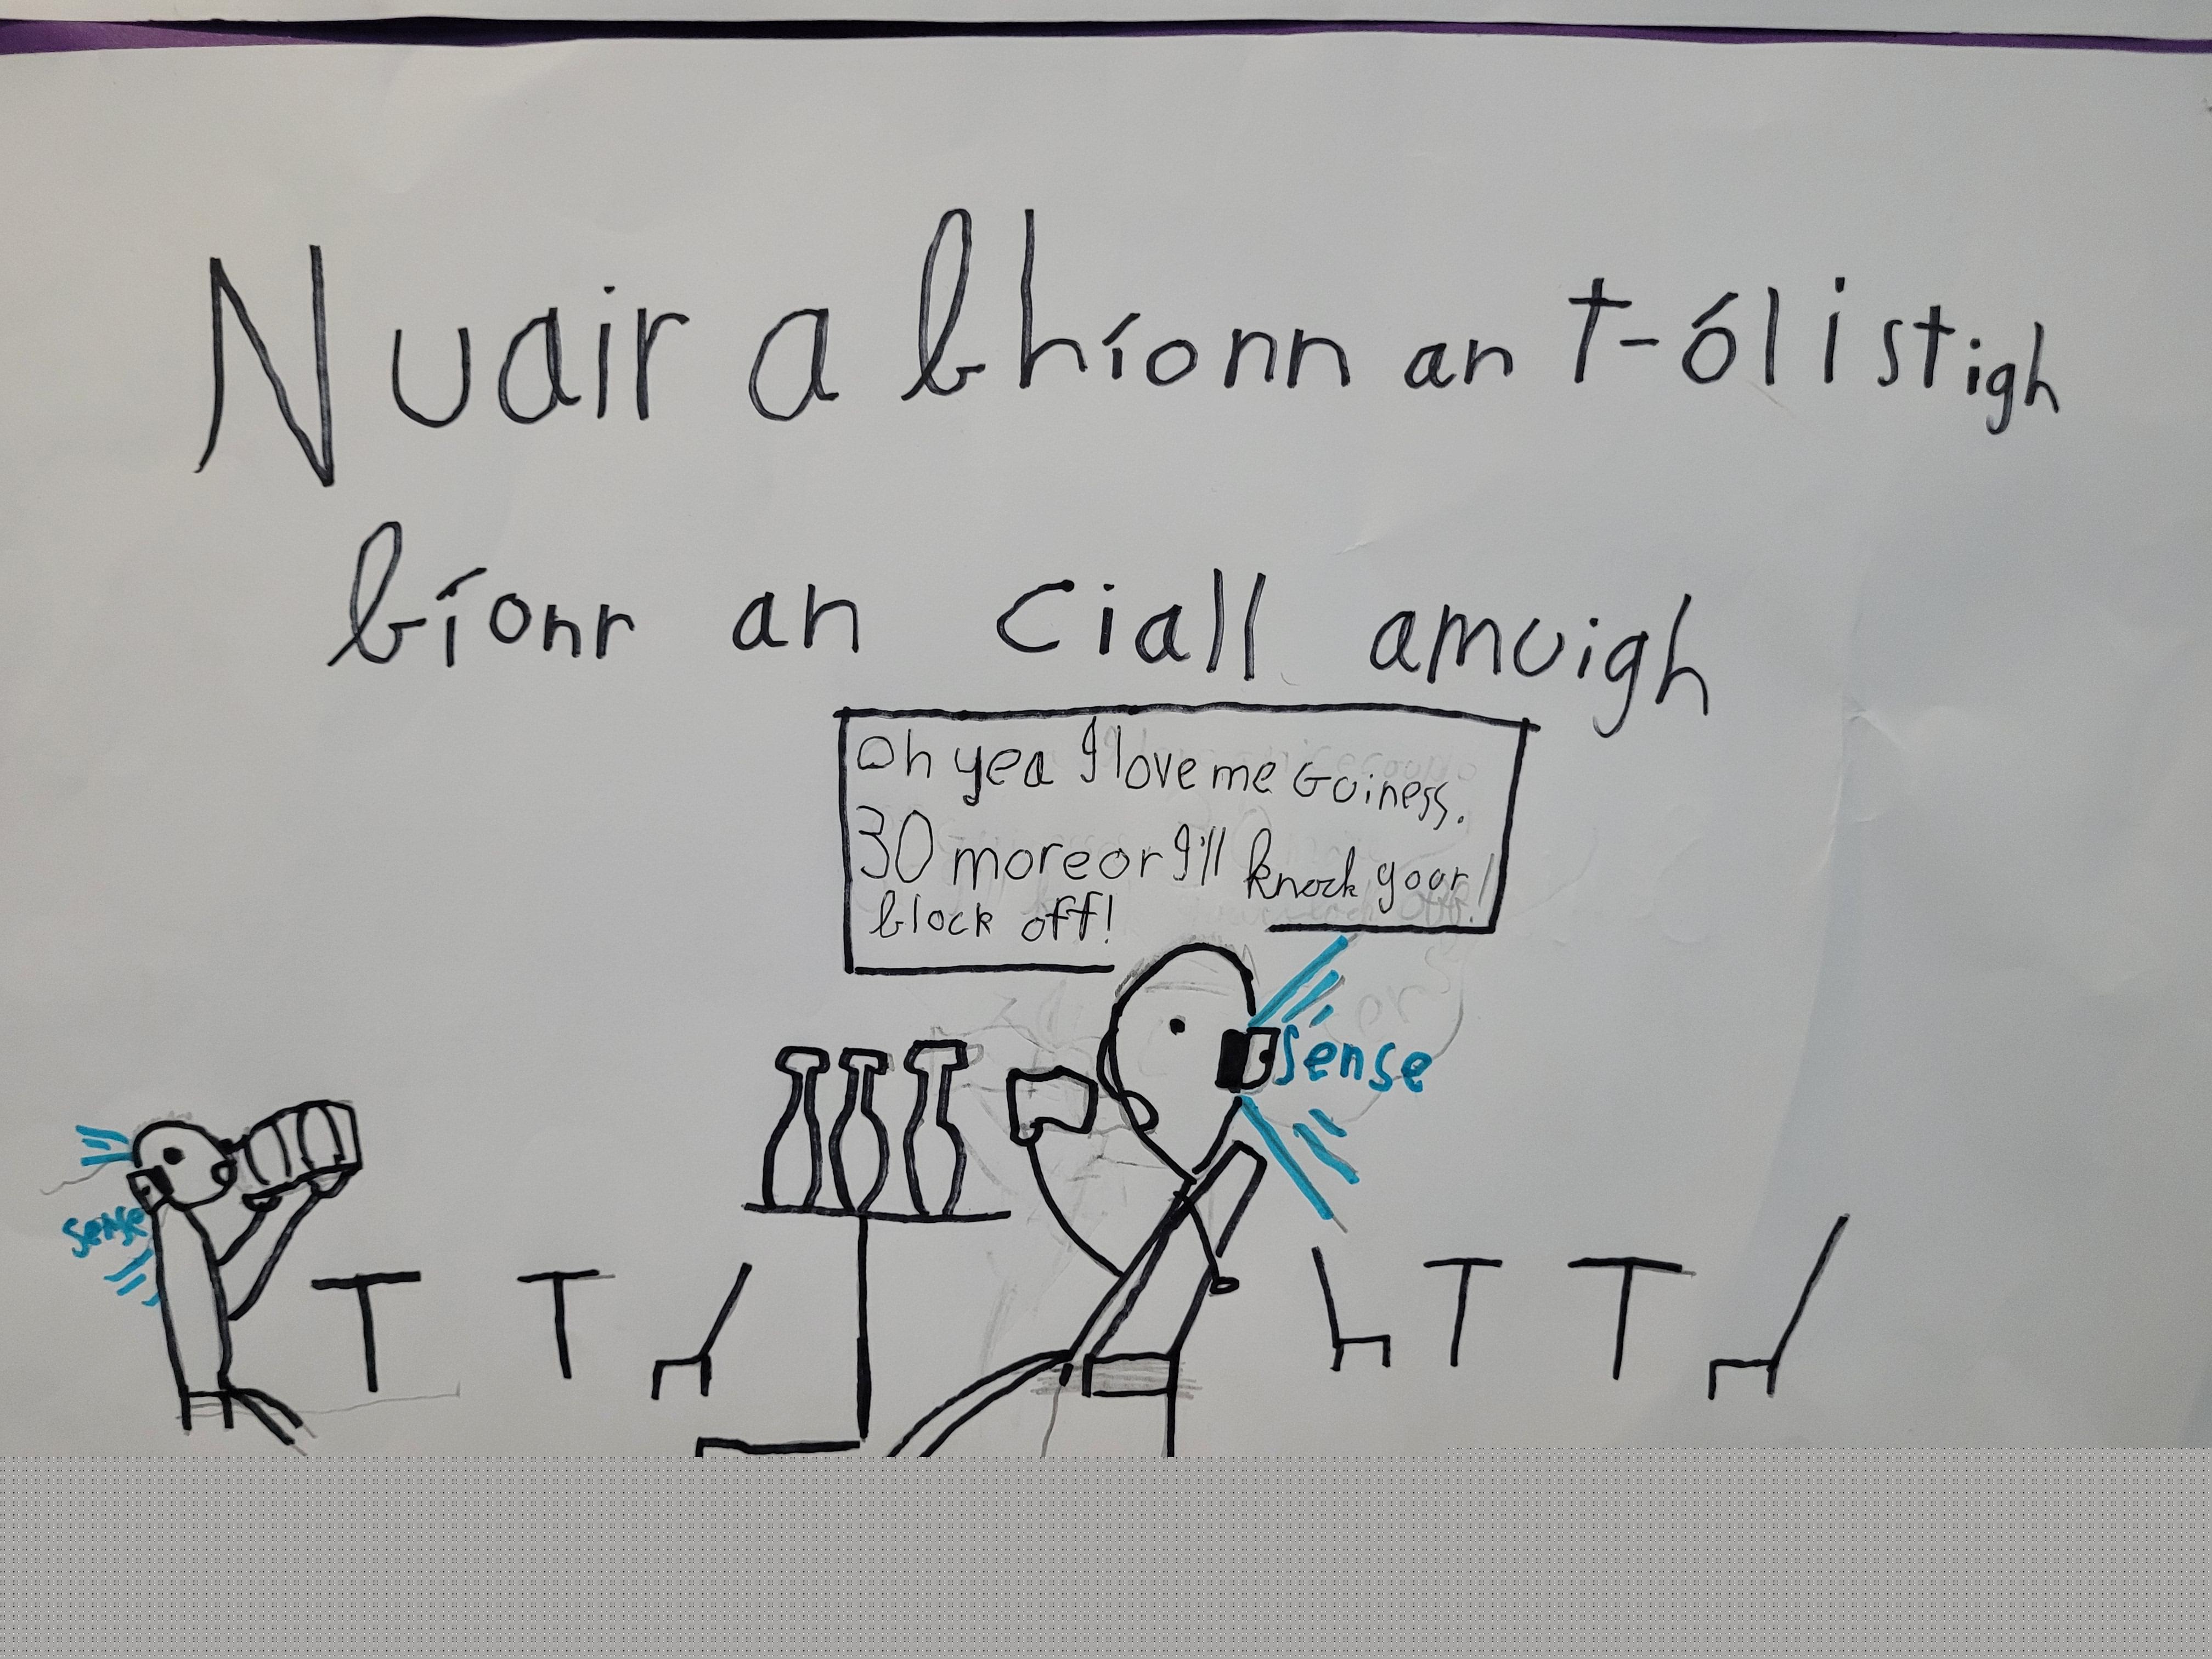 Nuair a bhíonn an t-ól istigh
bíonn an ciall amuigh
Oh yea I love me Guiness.
30 more or I'll knock your
block off!
sense
sense